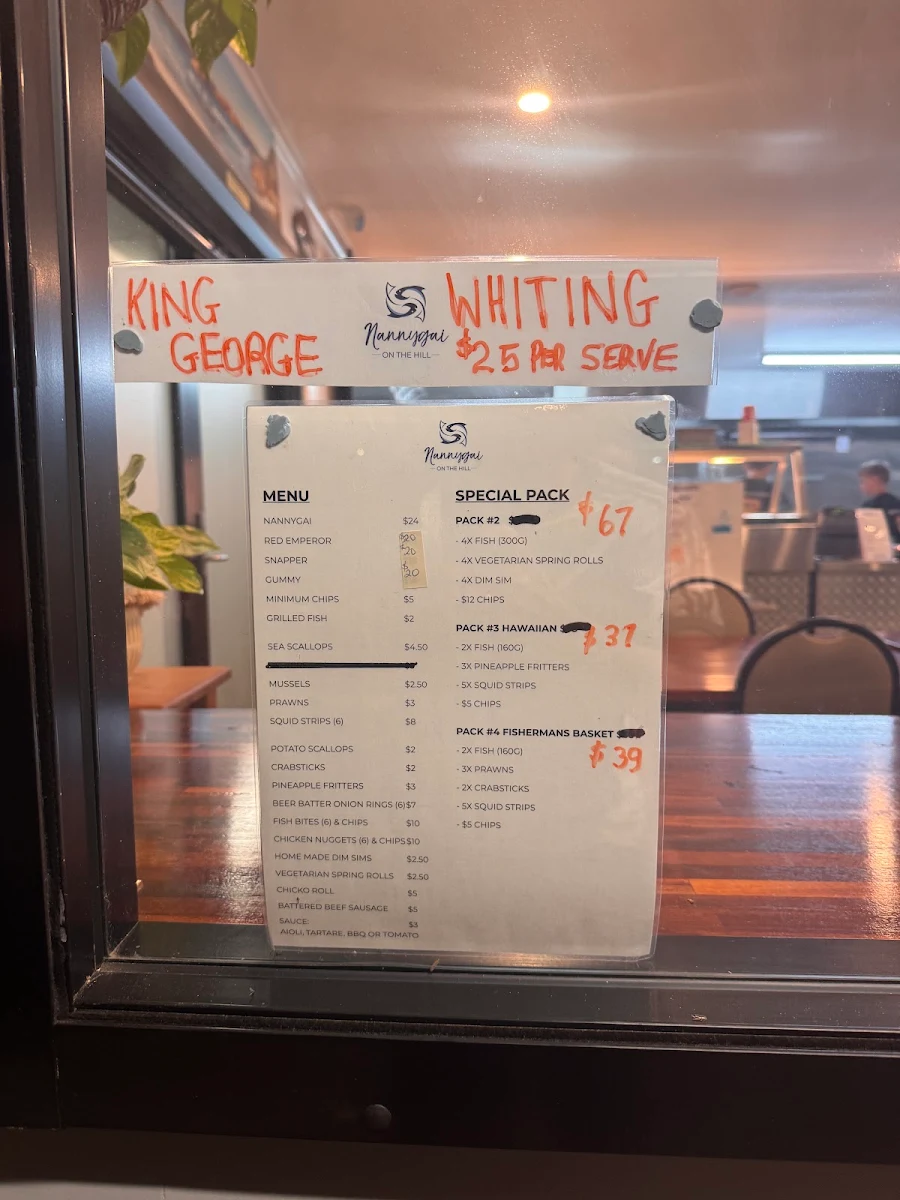 KING
GEORGE
Nannygai
ON THE HILL
WHITING
$25 PER SERVE
Nannygai
ON THE HILL
MENU
NANNYGAI $24
RED EMPEROR $20
SNAPPER $20
GUMMY $20
MINIMUM CHIPS $5
GRILLED FISH $2
SEA SCALLOPS $4.50
MUSSELS $2.50
PRAWNS $3
SQUID STRIPS (6) $8
POTATO SCALLOPS $2
CRABSTICKS $2
PINEAPPLE FRITTERS $3
BEER BATTER ONION RINGS (6)$7
FISH BITES (6) & CHIPS $10
CHICKEN NUGGETS (6) & CHIPS$10
HOME MADE DIM SIMS $2.50
VEGETARIAN SPRING ROLLS $2.50
CHICKO ROLL $5
BATTERED BEEF SAUSAGE $5
SAUCE: $3
AIOLI, TARTARE, BBQ OR TOMATO
SPECIAL PACK
PACK #2 $67
- 4X FISH (300G)
- 4X VEGETARIAN SPRING ROLLS
- 4X DIM SIM
- $12 CHIPS
PACK #3 HAWAIIAN $37
- 2X FISH (160G)
- 3X PINEAPPLE FRITTERS
- 5X SQUID STRIPS
- $5 CHIPS
PACK #4 FISHERMANS BASKET
$39
- 2X FISH (160G)
- 3X PRAWNS
- 2X CRABSTICKS
- 5X SQUID STRIPS
- $5 CHIPS